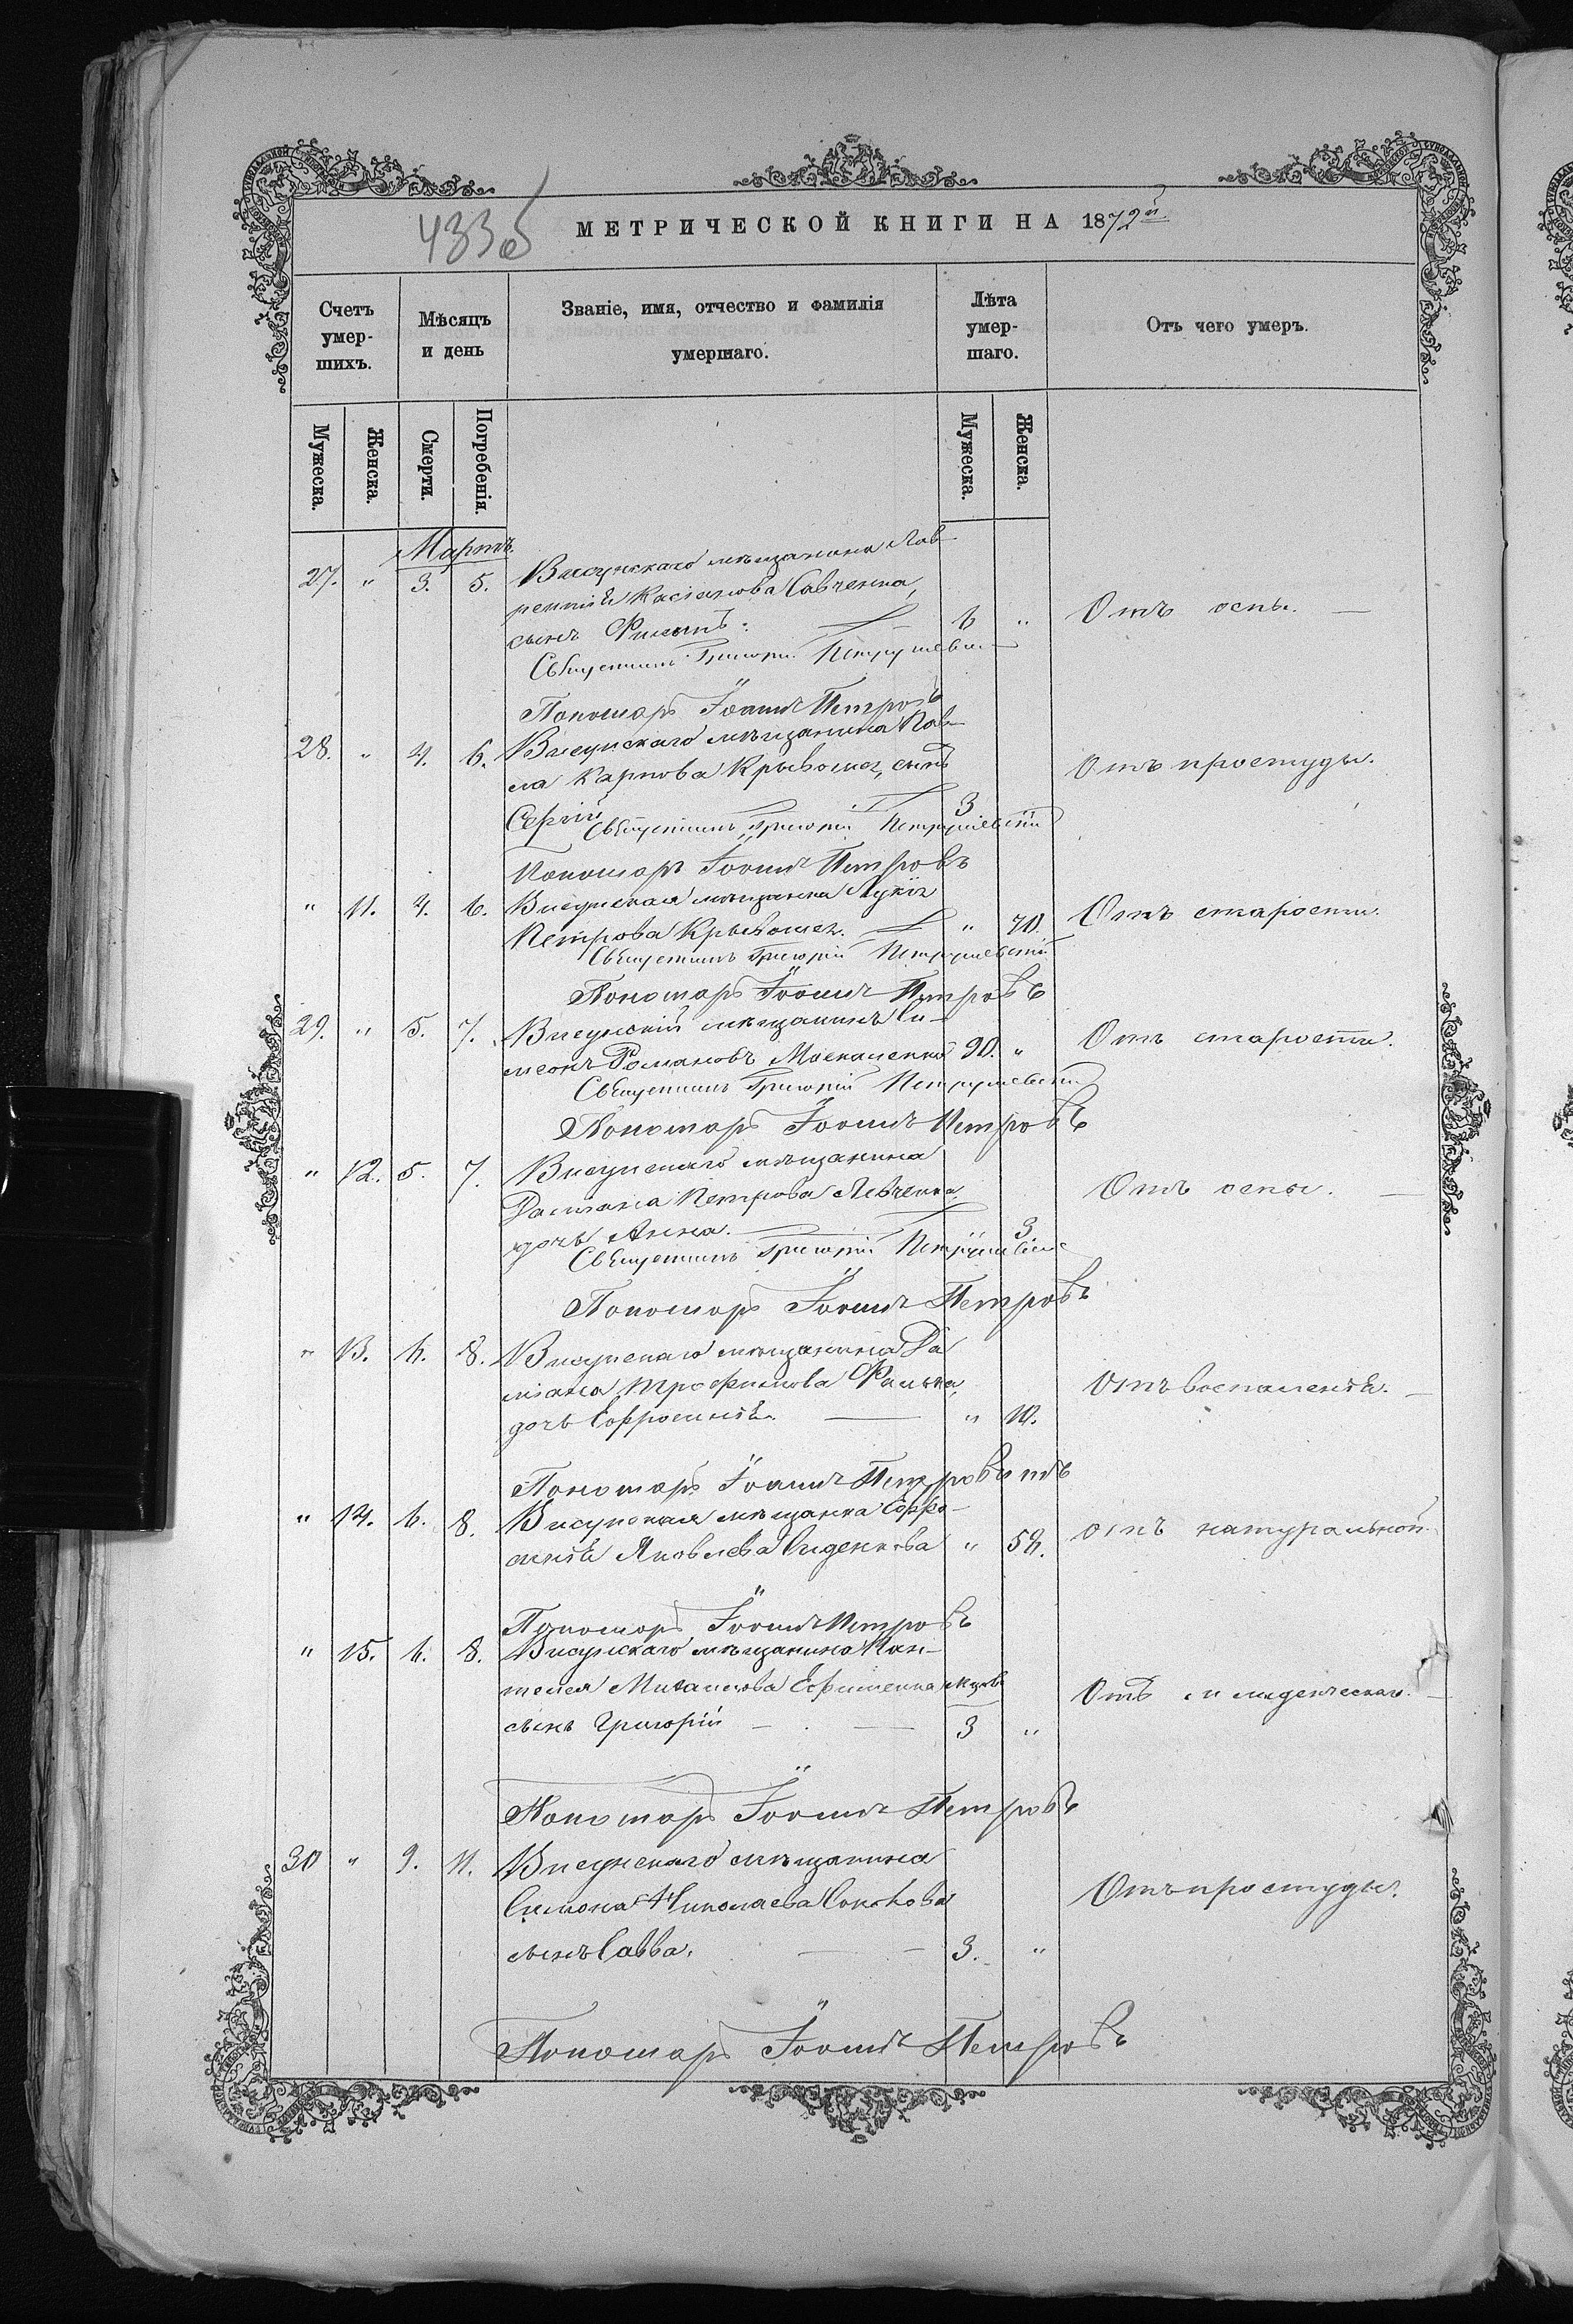 433об
МЕТРИЧЕСКОЙ КНИГИ НА 1872й.
Счетъ умер-шихъ.
Мѣсяцъ и день
Званіе, имя, отчество и фамилія умершаго.
Лѣта умер-шаго.
Отъ чего умеръ.
Мужеска.
Женска.
Смерти.
Погребенія.
Мужеска.
Женска.
Мартъ.
27. " 3. 5. Висунскаго мѣщанина Лав-
рентія Касіанова Савченка,
сынъ Филипъ. 6 " Отъ оспы.
Священникъ Григорій Петрушевскій
Пономарь Іоаннъ Петровъ
28. " 4. 6. Висунскаго мѣщанина Пав-
ла Карпова Крывошея, сынъ Отъ простуды.
Сергій 3
Священникъ Григорій Петрушевскій
Пономарь Іоаннъ Петровъ
" 11. 4. 6. Висунская мѣщанка Лукія
Петрова Крывошея. " 70. Отъ старости.
Священникъ Григорій Петрушевскій
Пономарь Іоаннъ Петровъ
29. " 5. 7. Висунскій мѣщанинъ Си-
меонъ Романовъ Москаленко 90. " Отъ старости.
Священникъ Григорій Петрушевскій
Пономарь Іоаннъ Петровъ
" 12. 5. 7. Висунскаго мѣщанина
Даміана Петрова Левченка, Отъ оспы.
дочь Анна. 3
Священникъ Григорій Петрушевскій
Пономарь Іоаннъ Петровъ
" 13. 6. 8. Висунскаго мѣщанина Да
міана Трофимова
дочь Ефросинія. " 10. Отъ воспаленія.
Пономарь Іоаннъ Петровъ
" 14. 6. 8. Висунская мѣщанка Ефро-
синія Яковлева " 58. отъ натуральной.
Пономарь Іоаннъ Петровъ
" 15. 6. 8. Висунскаго мѣщанина Пан-
телея Михайлова Ефименка мѣсяц.
сынъ Григорій 3 " Отъ младенческаго.
Пономарь Іоаннъ Петровъ
30 " 9. 11. Висунскаго мѣщанина
Симона Николаева Отъ простуды.
сынъ Савва. 3. "
Пономарь Іоаннъ Петровъ